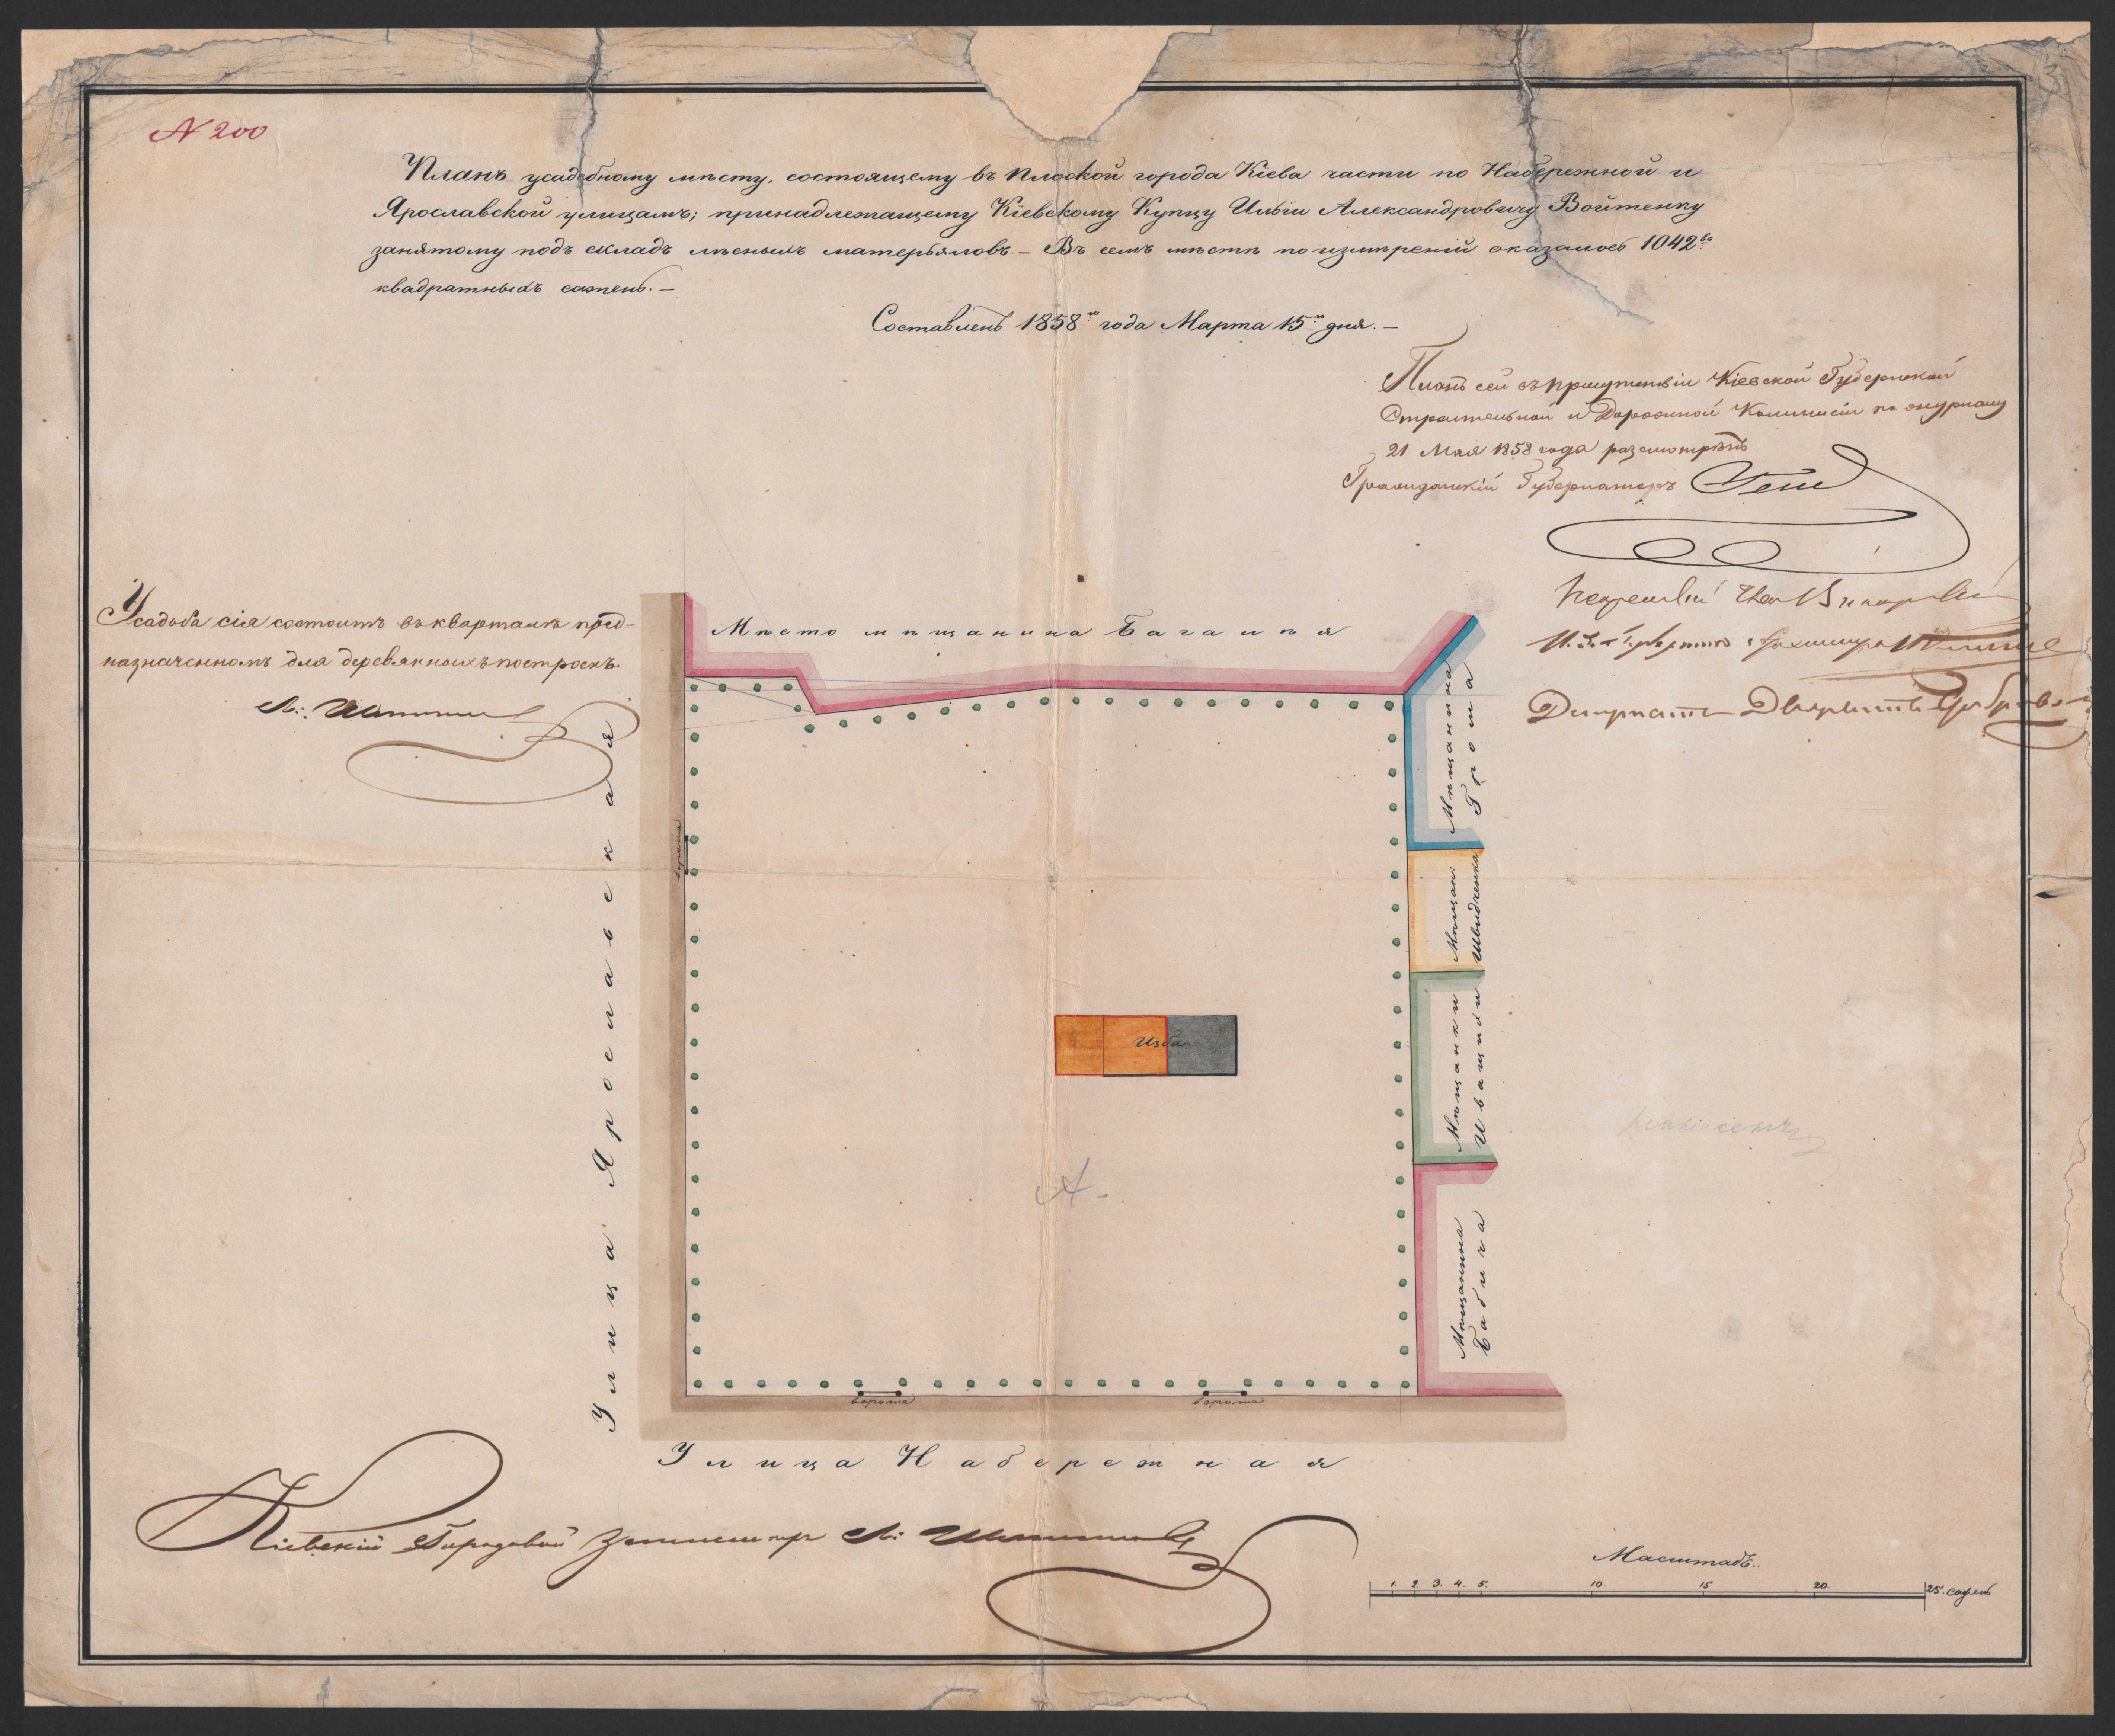 N 200
Планъ усадебному мѣсту, состоящему въ Плоской города Кіева части по Набережной и
Ярославской улицамъ; принадлежащему Кіевскому Купцу Ильи Александровичу Войтенку
занятому подъ складъ лѣсныхъ матерьяловъ. – Въ семъ мѣстѣ по измѣреній оказалось 1042 ва
квадратныхъ сажень. –
Составленъ 1858 го года Марта 15 го дня. –
Планъ сей въ присутствіи Кіевской Губернской
Строительной и Дорожной Коммисіи по журналу
21 Мая 1858 года разсмотрѣнъ
Гражданскій Губернаторъ Гессе
Усадьба сія состоитъ въ кварталѣ пред-
назначенномъ для деревянныхъ построекъ.
Мѣсто мѣщанина Багація
Мѣщанина
Грота
Мѣщан
Швидченка
Мѣщанки
Иващии
Мѣщанина
Бабича
Улица Ярославская
ворота
Изба
А.
ворота
ворота
Улица Набережная
Кіевскій Городовой Землемѣръ
Масштабъ.
1. 2. 3. 4. 5. 10 15 20. 25. сажень